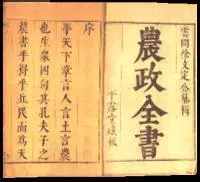 雲間徐文定公纂輯
農政全書
平露堂
序
平天下章言人言土言農
也生眾因句其孔夫子之
農書乎得乎丘民而為天